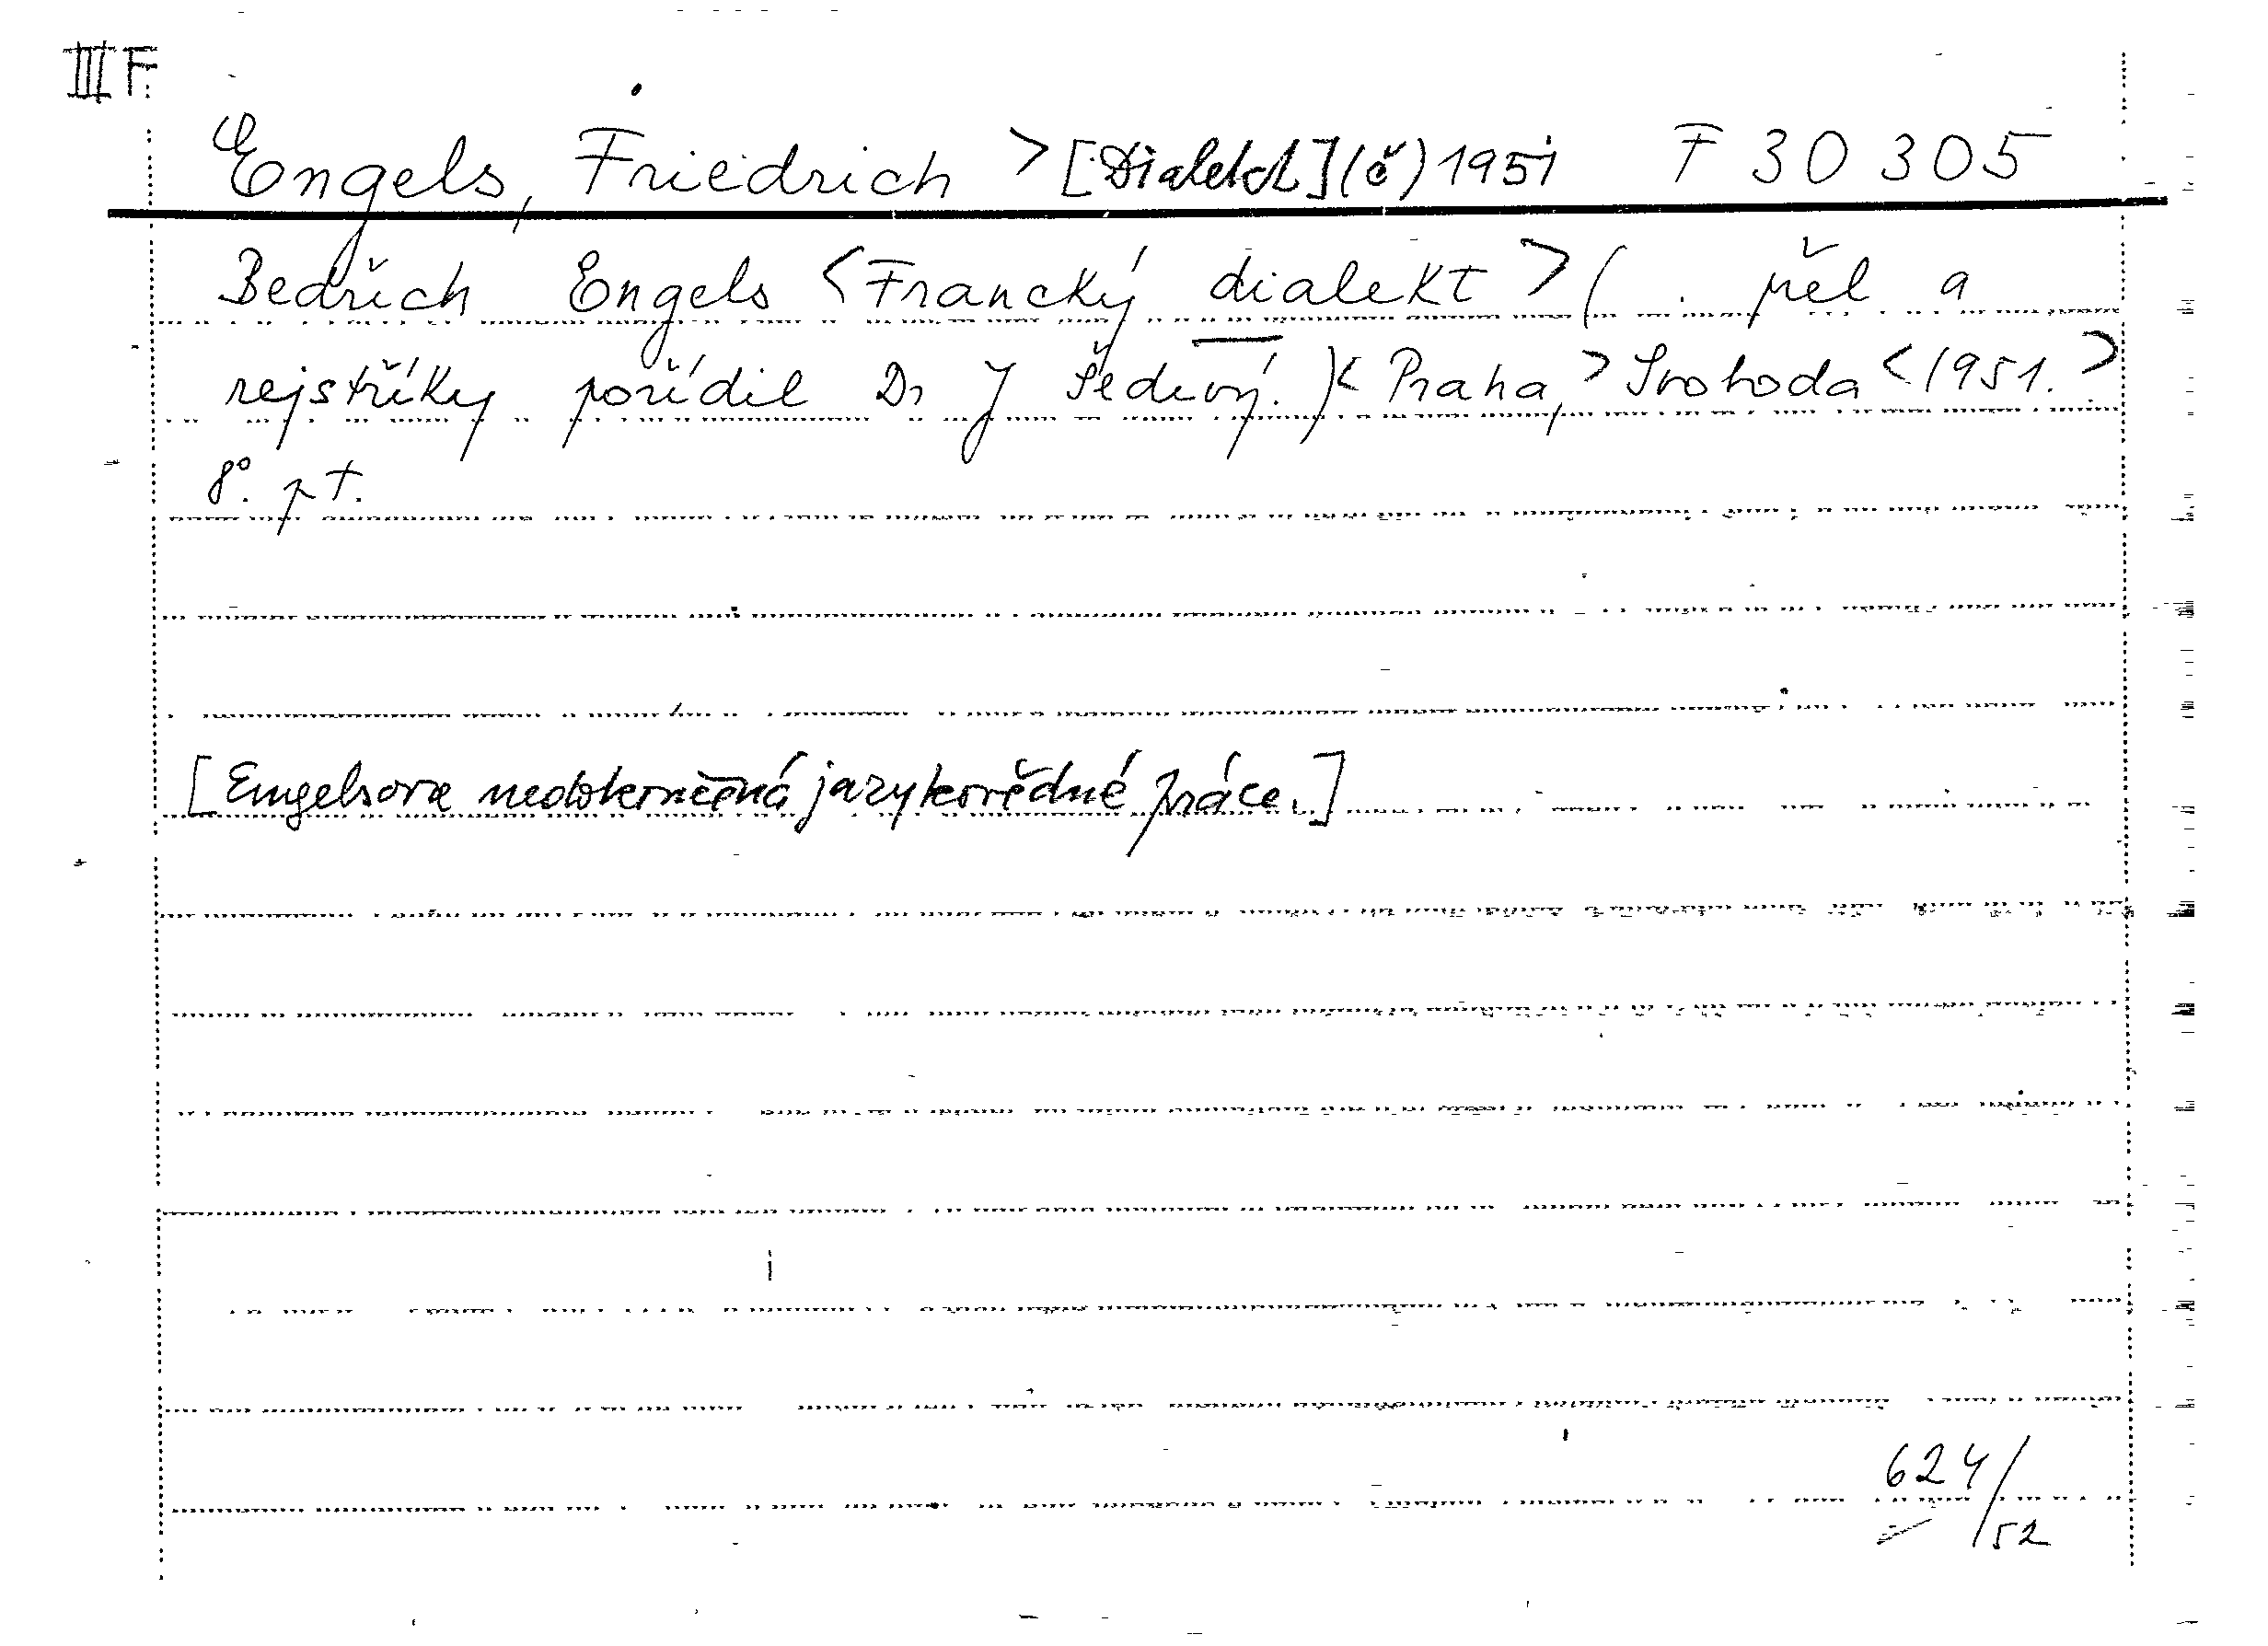 III F
Engels, Friedrich > [Dialekt] (č) 1951 F 30305
Bedřich Engels < Francký dialekt > ( . přel a
rejstříky pořídil Dr J Šedivý. ) < Praha, > Svoboda < 1951. >
8°. pt.
[Engelsova nedokončená jazykovědné práce.]
624/52